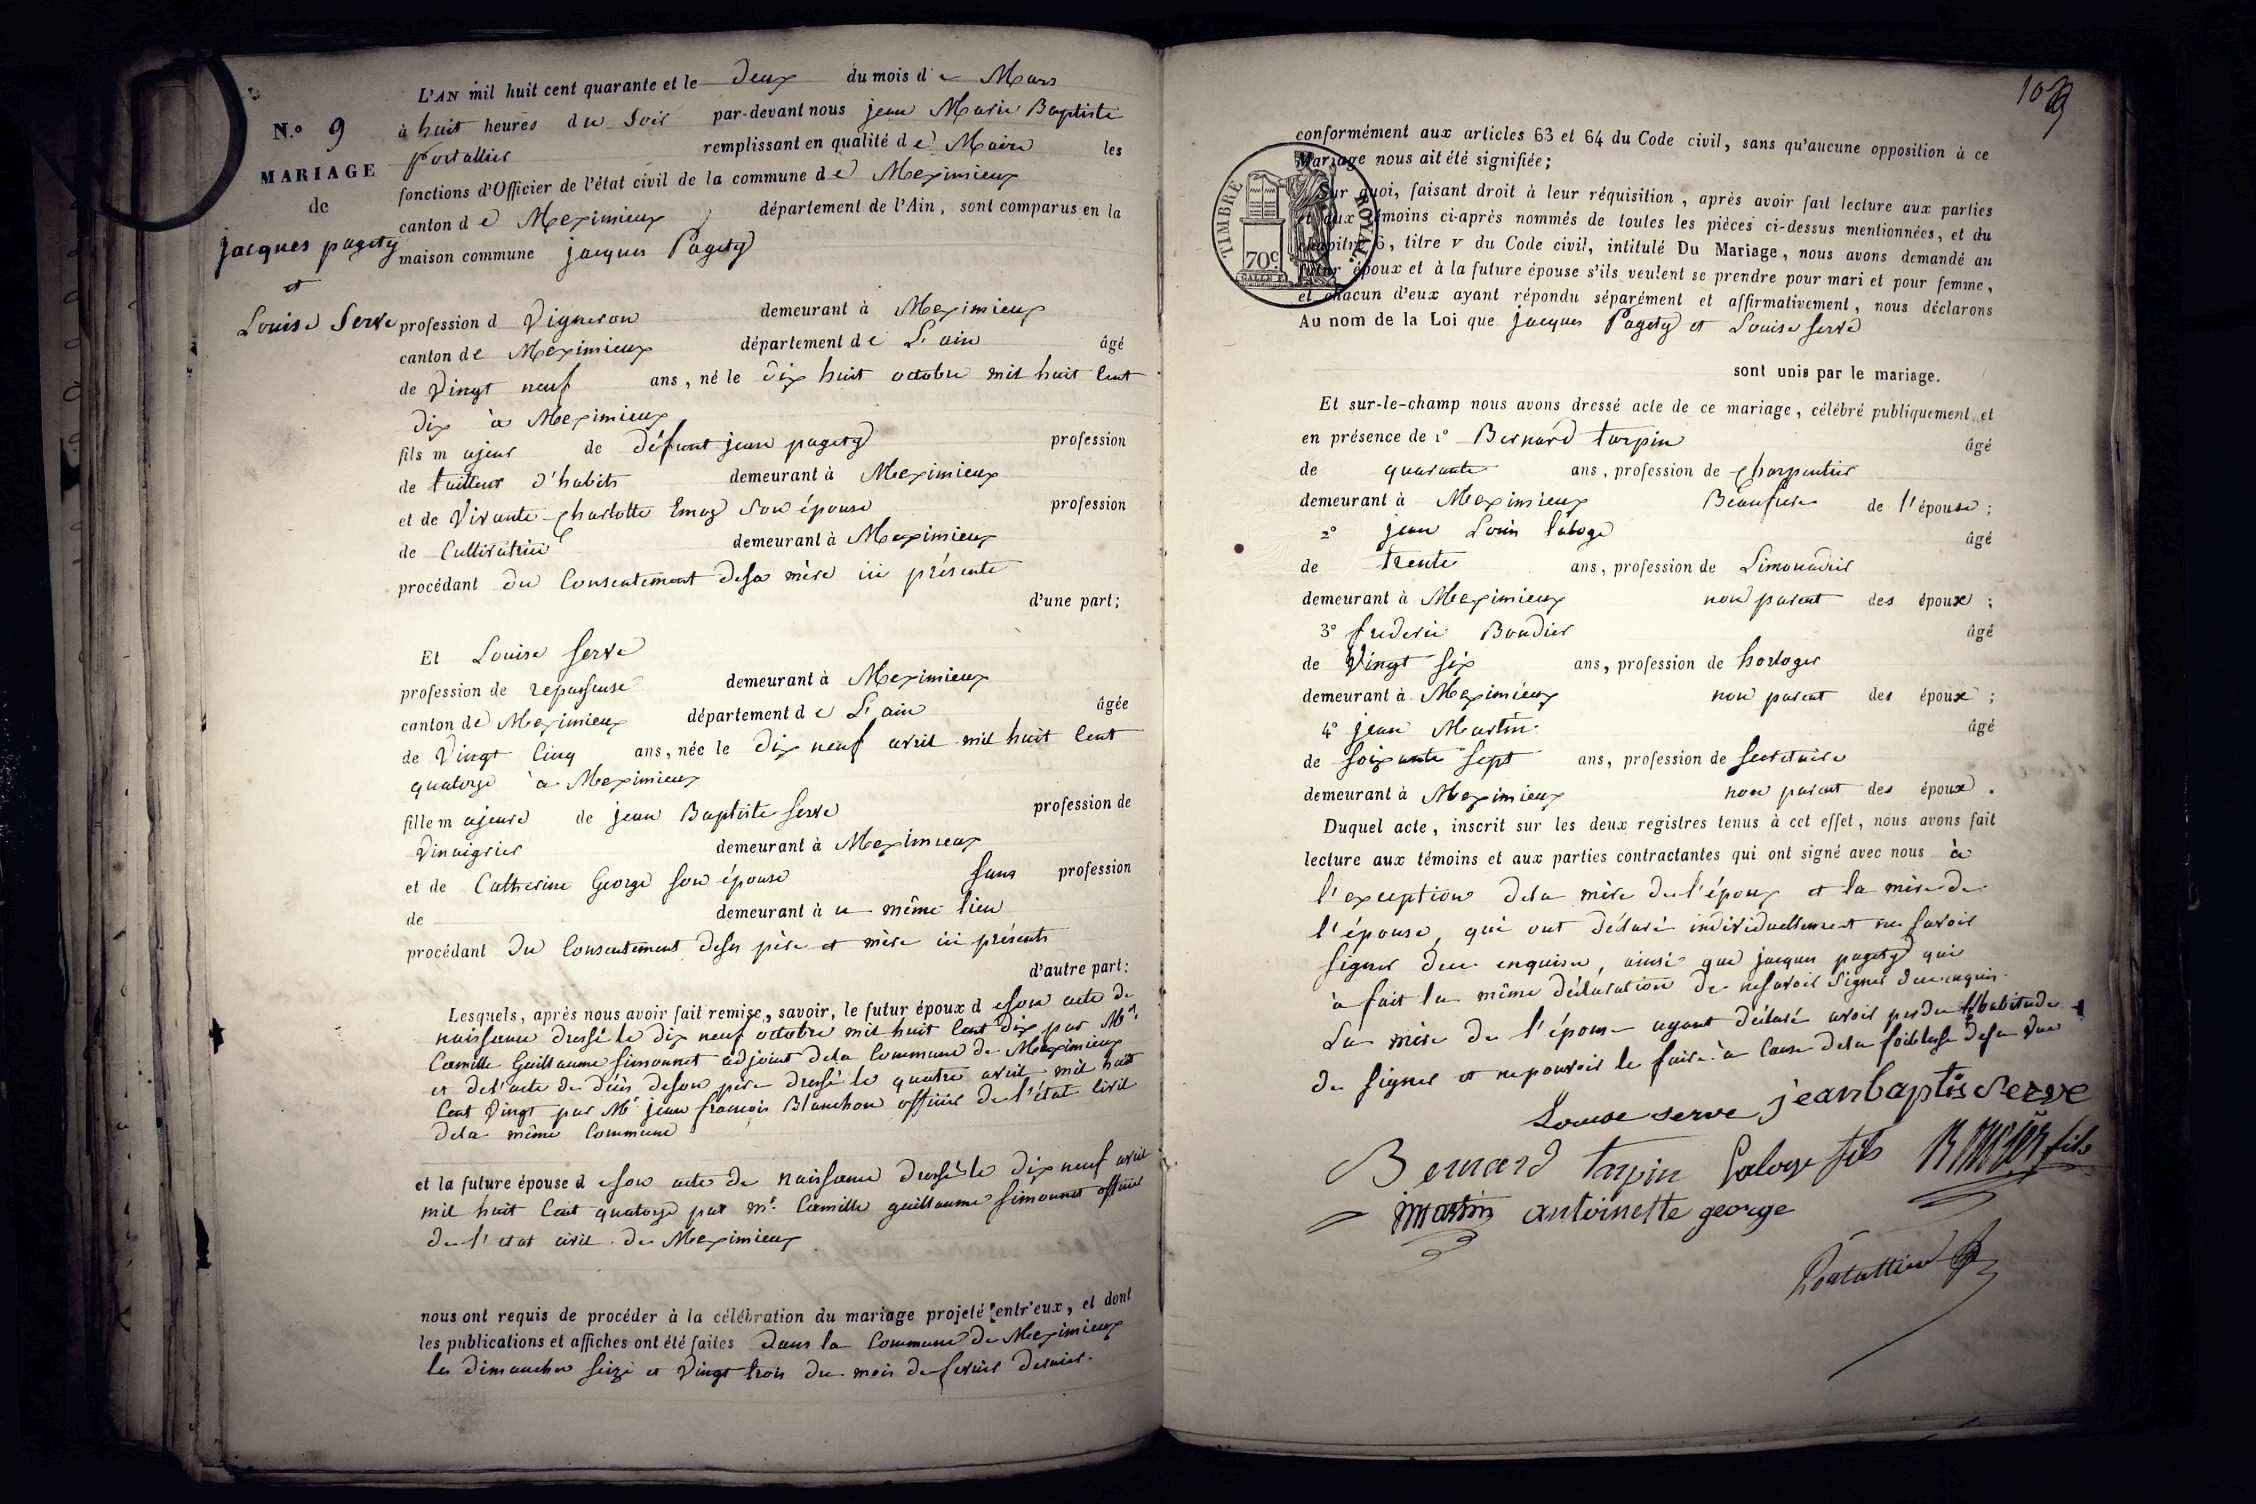 L'AN mil huit cent quarante et le deux du mois de Mars
N.º 9
à huit heures du Soir par-devant nous jean Marie Baptiste
portallier remplissant en qualité de Maire les
MARIAGE
fonctions d'Officier de l'état civil de la commune de Meximieux
de
canton de Meximieux département de l'Ain, sont comparus en la
jacques pagety
maison commune jacques Pagety
et
Louise Serve
profession d Vigneron demeurant à Meximieux
canton de Meximieux département de L'ain âgé
de Vingt neuf ans, né le dix huit octobre mil huit Cent
dix à Meximieux
fils majeur de défunt jean pagety profession
de tailleur d'habits demeurant à Meximieux
et de Vivante Charlotte Emoz Son épouse profession
de Cultivatrice demeurant à Meximieux
procédant du Consentement desa mère ici présente
d'une part;
Et Louise Serve
profession de repasseuse demeurant à Meximieux
canton de Meximieux département de L'ain âgée
de Vingt Cinq ans, née le dix neuf avril mil huit Cent
quatorze à Meximieux
fille majeure de jean Baptiste Serve profession de
Vinaigrier demeurant à Meximieux
et de Catherine George Son épouse Sans profession
de demeurant à u même lieu
procédant du Consentement deses père et mère ici présents
d'autre part:
Lesquels, après nous avoir fait remise, savoir, le futur époux d eson acte de
naissance dressé le dix neuf octobre mil huit Cent dix par Mr.
Camille Guillaume Simonnet adjoint dela Commune de Meximieux
et del'acte de décès deson père dressé le quatre avril mil huit
Cent Vingt par Mr jean françois Blanchon officier de l'état Civil
dela même Commune
et la future épouse d eson acte de naissance dressé le dix neuf avril
mil huit Cent quatorze par mr. Camille guillaume Simonnet officier
de l'etat civil de Meximieux
nous ont requis de procéder à la célébration du mariage projeté entr'eux, et dont
les publications et affiches ont été faites dans la Commune de Meximieux
les dimanches Seize et Vingt trois du mois de fevrier dernier.
103
conformément aux articles 63 et 64 du Code civil, sans qu'aucune opposition à ce
Mariage nous ait été signifiée;
TIMBRE ROYAL.
70C
Sur quoi, faisant droit à leur réquisition, après avoir fait lecture aux parties
et aux témoins ci-après nommés de toutes les pièces ci-dessus mentionnées, et du
chapitre 6, titre v du Code civil, intitulé Du Mariage, nous avons demandé au
futur époux et à la future épouse s'ils veulent se prendre pour mari et pour femme,
et chacun d'eux ayant répondu séparément et affirmativement, nous déclarons
Au nom de la Loi que jacques Pagety et Louise Serve
sont unis par le mariage.
Et sur-le-champ nous avons dressé acte de ce mariage, célébré publiquement et
en présence de 1º Bernard tarpin âgé
de quarante ans, profession de Charpentier
demeurant à Meximieux Beaufrere de l'épouse;
2º jean Louis laloge âgé
de trente ans, profession de Limonadier
demeurant à Meximieux non parent des époux;
3º frederic Boudier âgé
de Vingt Six ans, profession de horloger
demeurant à Meximieux non parent des époux;
4º jean Martin âgé
de Soixante Sept ans, profession de Secretaire
demeurant à Meximieux non parent des époux.
Duquel acte, inscrit sur les deux registres tenus à cet effet, nous avons fait
lecture aux témoins et aux parties contractantes qui ont signé avec nous à
l'exception dela mère de l'époux et la mère de
l'épouse, qui ont déclaré individuellement ne Savoir
Signer de ce enquise, ainsi que jacques pagety qui
à fait la même déclaration de nesavoir Signer de ce enquis.
La mère de l'épouse ayant déclaré avoir perdu l'habitude
de Signer et nepouvoir le faire à Cause dela foiblesse desa Vue
Louise serve jeanbaptis Serve
Bernard tarpin Laloge fils fils
Martin antoinette george
Portallier